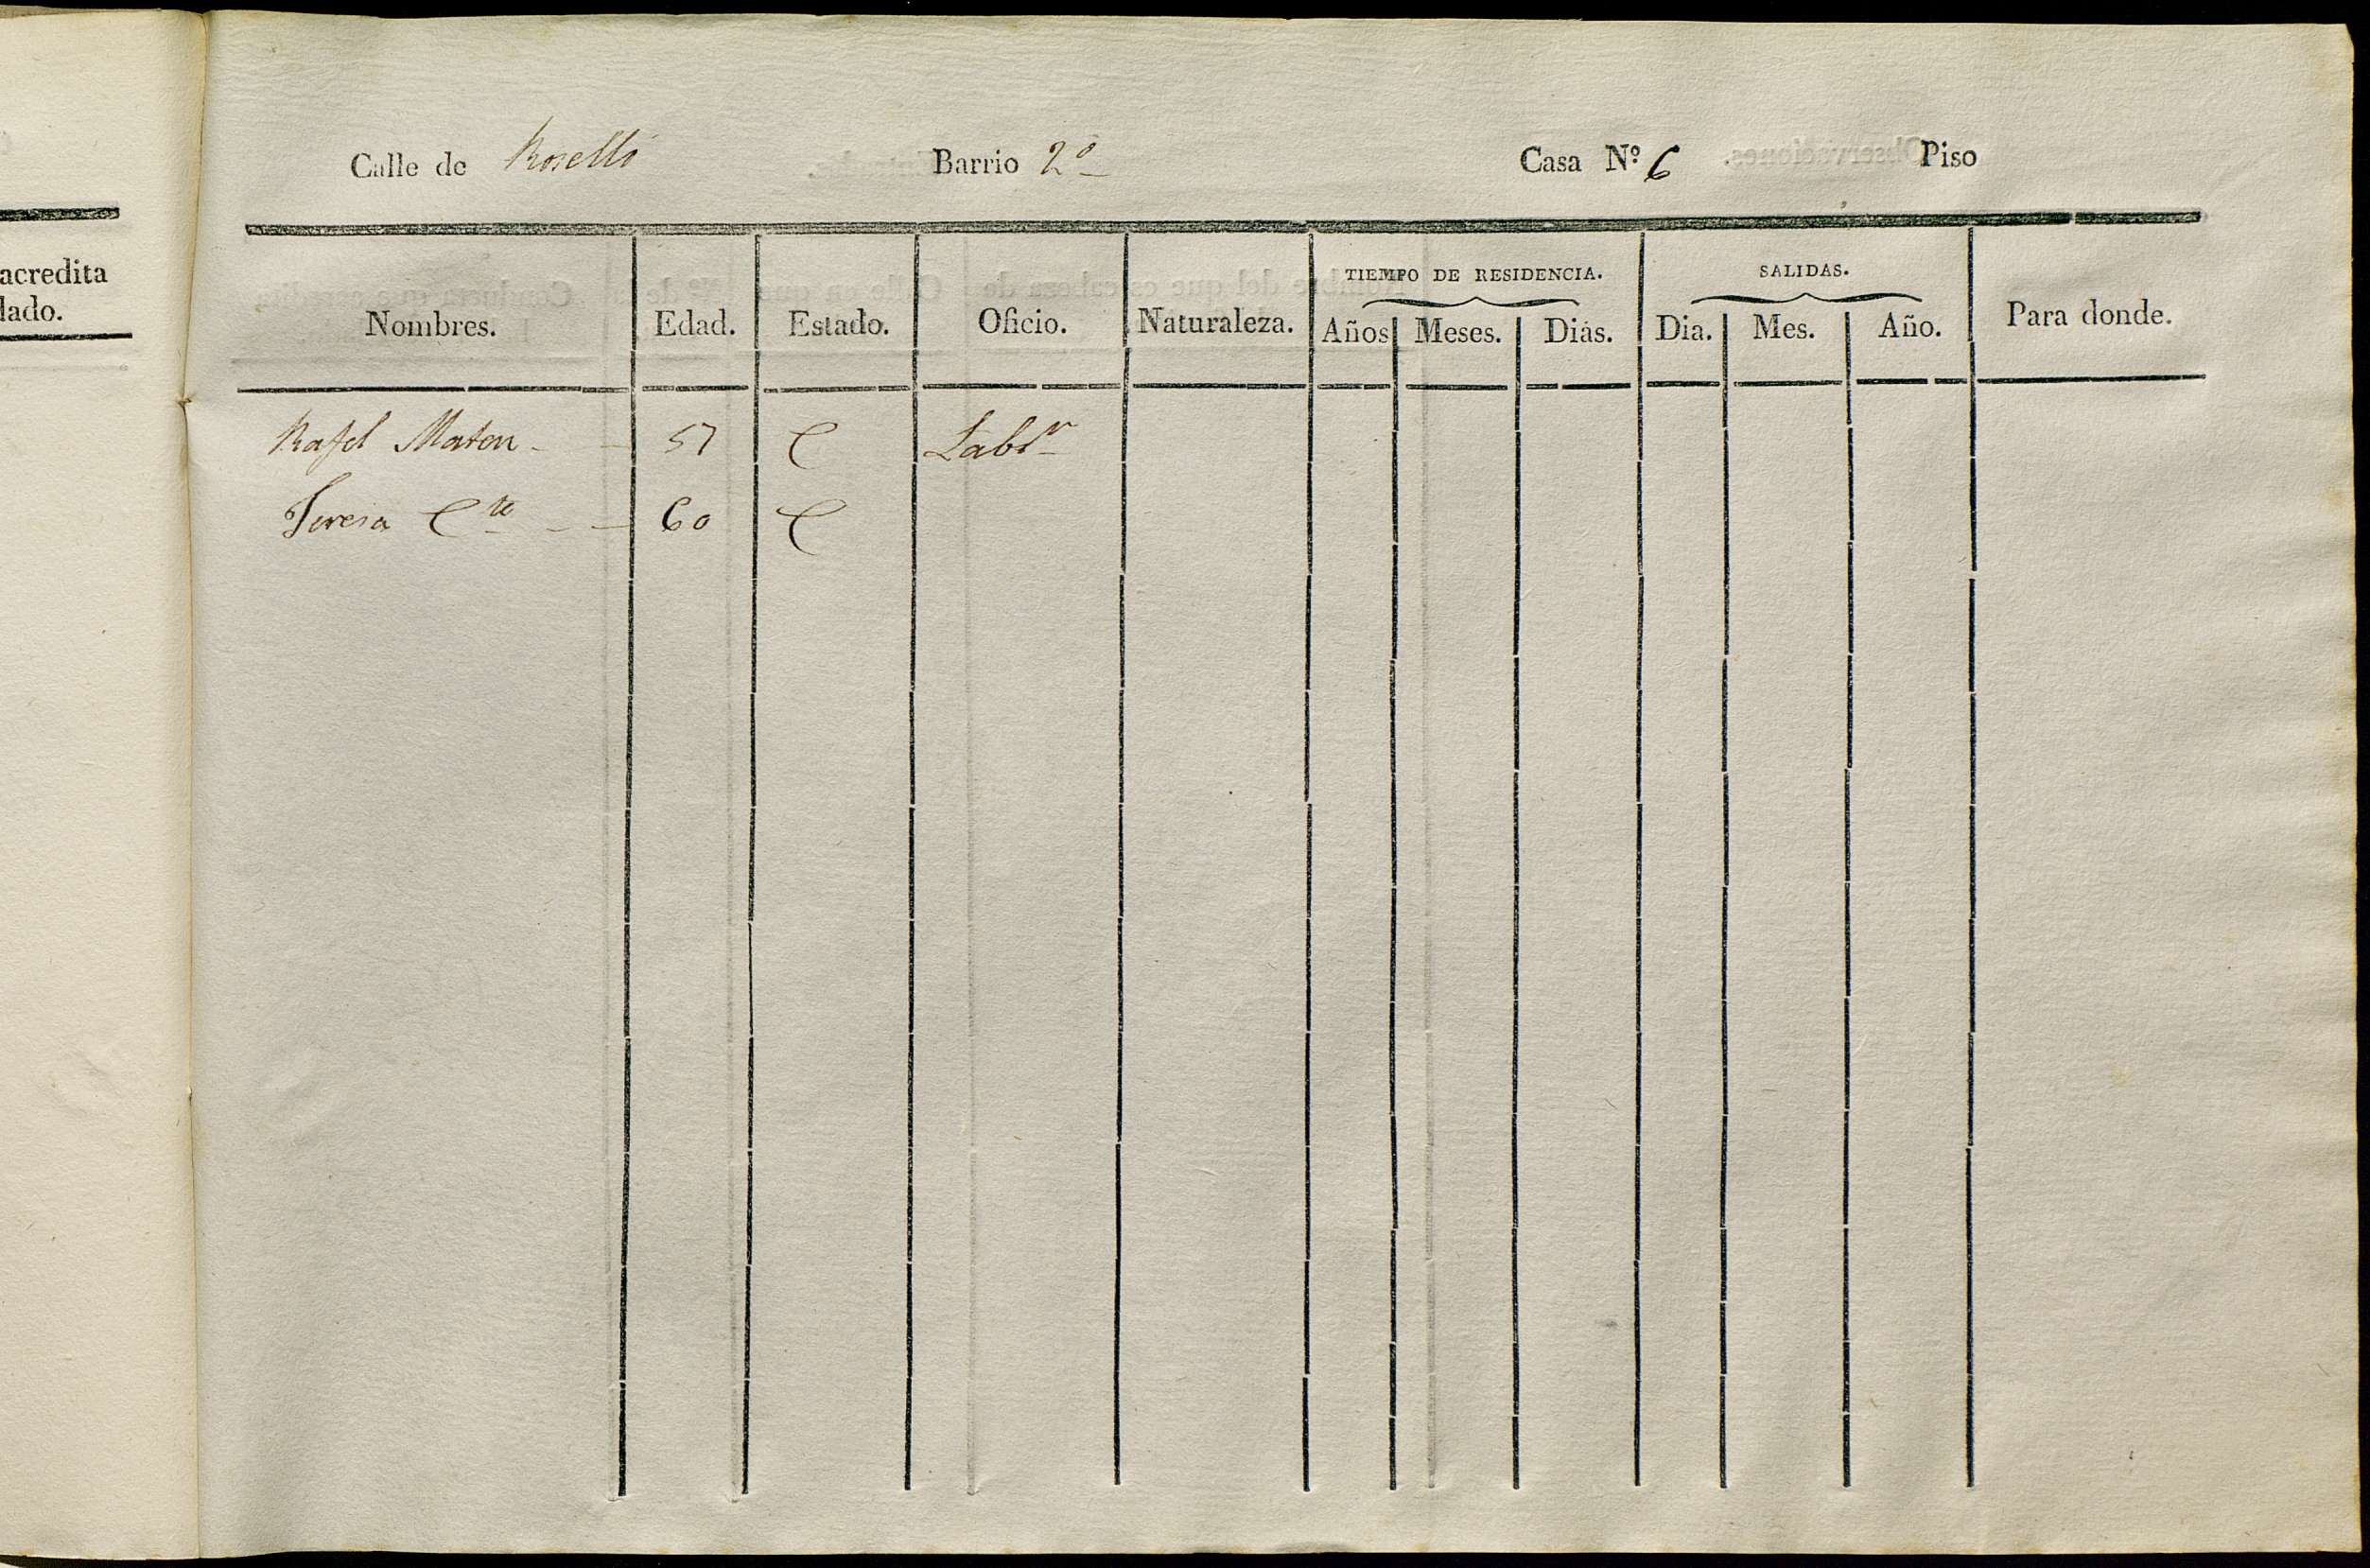 acredita
lado.
Calle de Roselló Barrio 2º Casa Nº 6 Piso
TIEMPO DE RESIDENCIA. SALIDAS.
Nombres. Edad. Estado. Oficio. Naturaleza. Años Meses. Dias. Dia. Mes. Año. Para donde.
Rafel Mateu 57 C Labrr
Teresa Cte 60 C